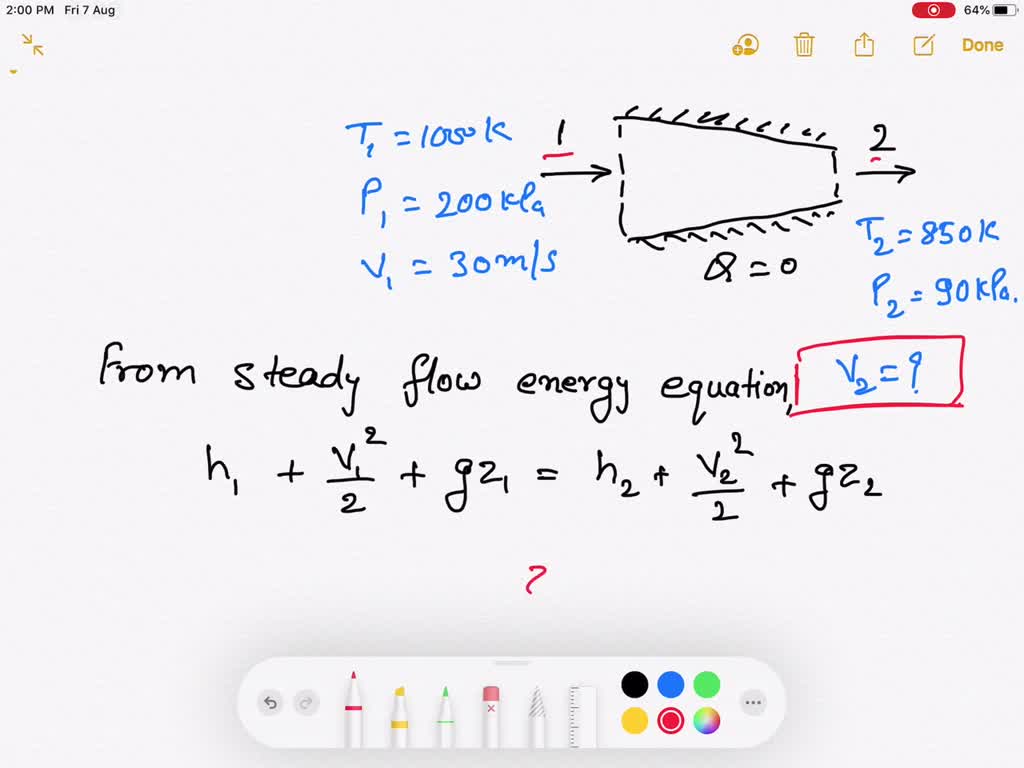 2:00 PM Fri 7 Aug
64%
Done
T₁ = 1000K
1
2
P₁ = 200 kPa
V₁ = 30 m/s
Q = 0
T₂ = 850K
P₂ = 90 kPa.
From steady flow energy equation, V₂ = ?
h₁ + V₁²/2 + gz₁ = h₂ + V₂²/2 + gz₂